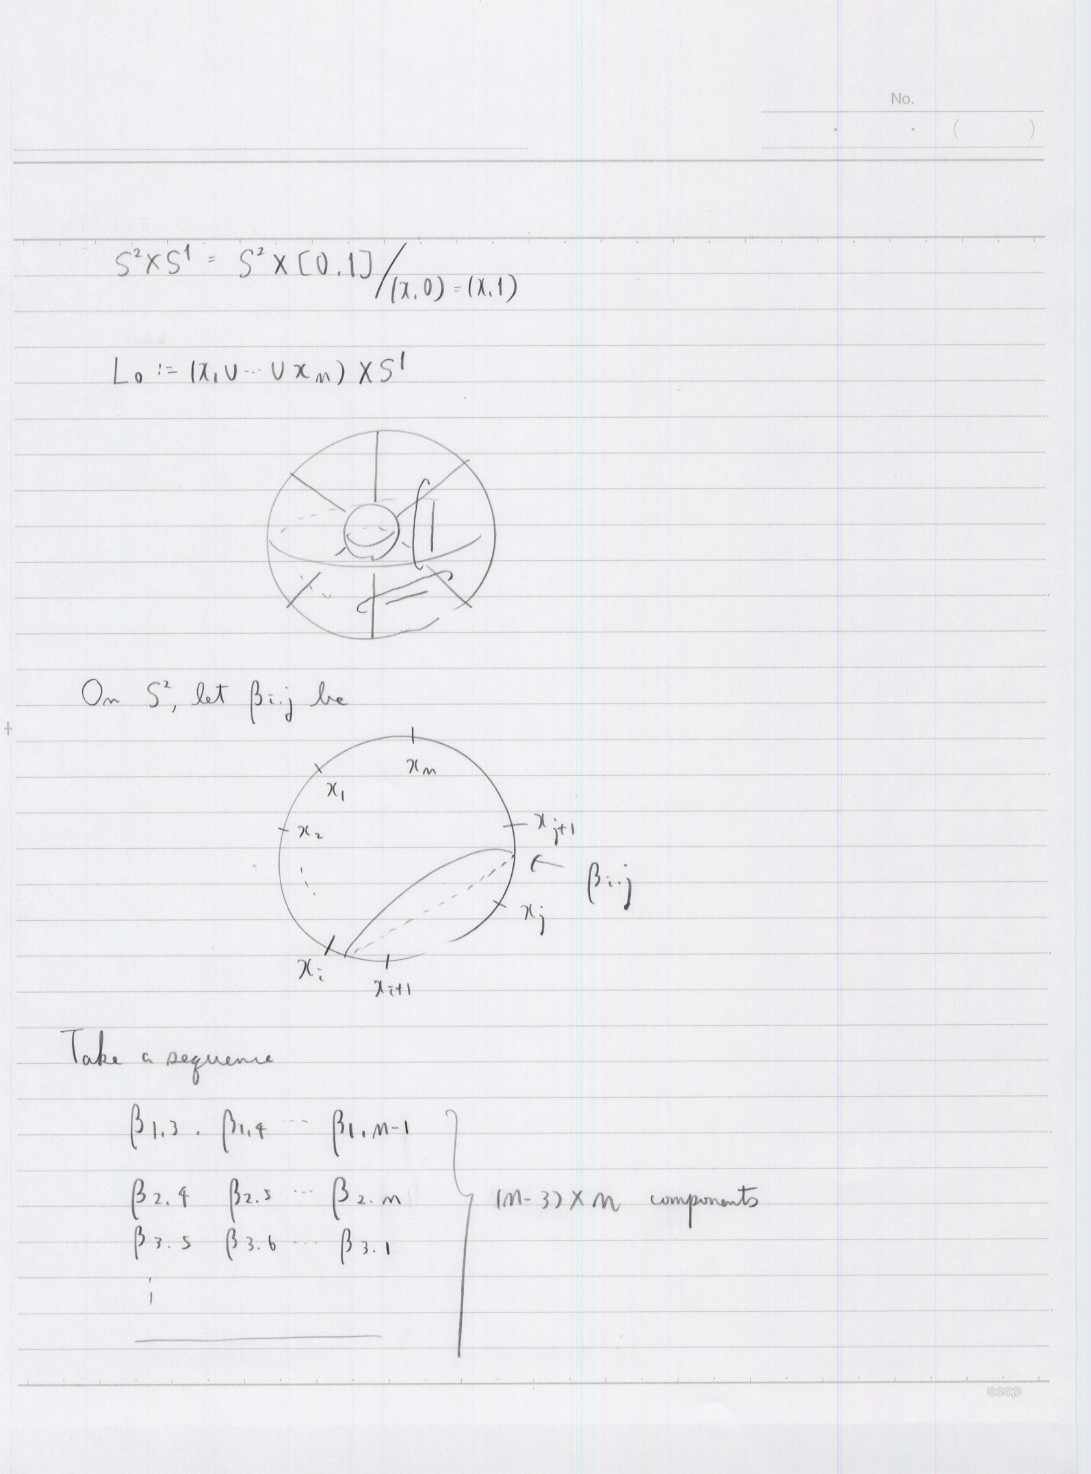 No.
. . ( )
S²×S¹ = S²×[0.1]/(x.0)=(x.1)
L₀ := (x₁∪⋯∪xₙ)×S¹
On S², let βi.j be
xₙ
x₁
x₂
xj+1
βi.j
xj
xi
xi+1
Take a sequence
β1.3 . β1.4 ⋯ β1.n-1
β2.4 β2.5 ⋯ β2.n (n-3)×n components
β3.5 β3.6 ⋯ β3.1
⋮
coop